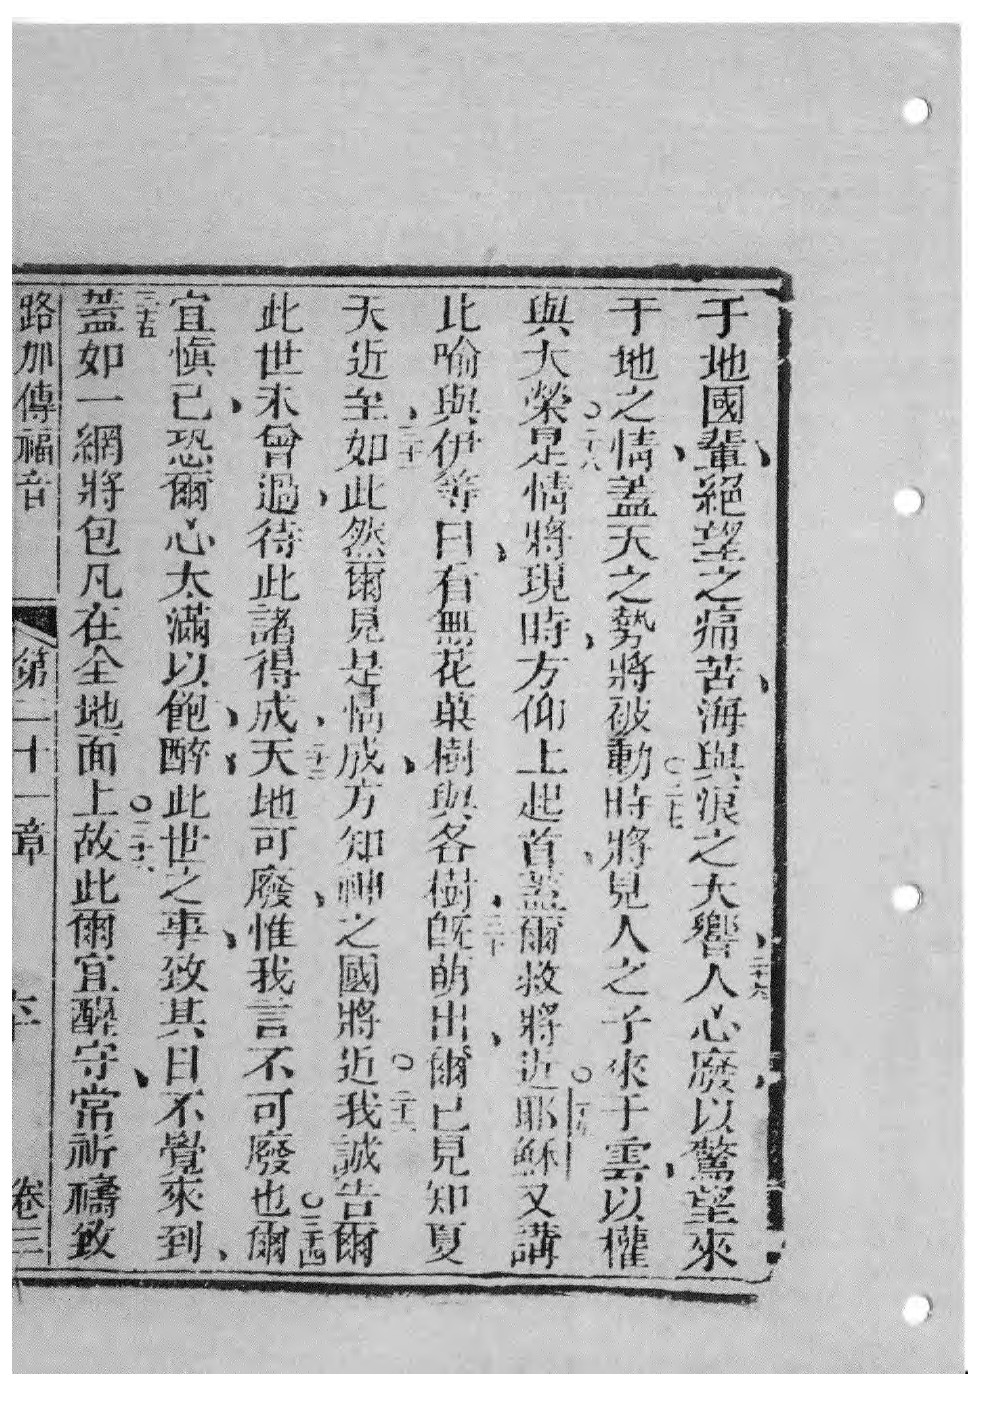 于地國輩絕望之痛苦海與浪之大響二十六人心廢以驚望來
于地之情蓋天之勢將破動○二十七時將見人之子來于雲以權
與大榮○二十八是情將現時方仰上起首蓋爾救將近○二十九耶穌又講
比喻與伊等曰看無花菓樹與各樹三十旣萌出爾已見知夏
天近至三十一如此然爾見是情成方知神之國將近○三十二我誠告爾
此世未曾過待此諸得成三十三天地可廢惟我言不可廢也○三十四爾
宜慎己恐爾心太滿以飽醉此世之事致其日不覺來到
三十五蓋如一網將包凡在全地面上○三十六故此爾宜醒守常祈禱致
路加傳福音 第二十一章 卷三